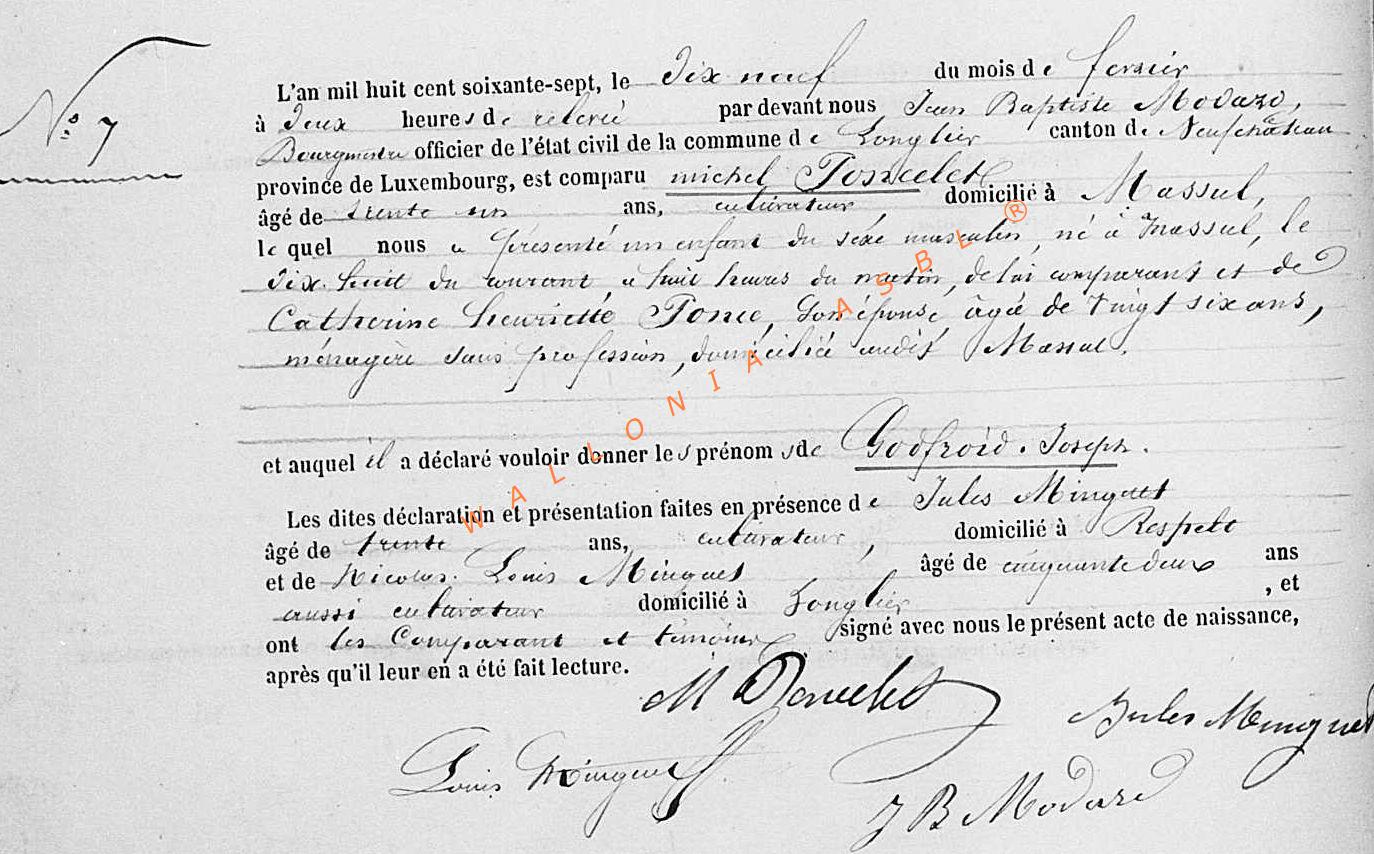 N.° 7
L'an mil huit cent soixante-sept, le Dix neuf du mois de fevrier
à Deux heures de relevé par devant nous Jean Baptiste Modard,
Bourgmestre officier de l'état civil de la commune de Longlier canton de Neufchâteau
province de Luxembourg, est comparu michel Poncelet
âgé de trente un ans, cultivateur, domicilié à Massul,
lequel nous a présenté un enfant du sexe masculin, né à Massul, le
Dix-huit du courant, a huit heures du matin, de lui comparant et de
Catherine Henriette Ponce, Son épouse, âgée de Vingt six ans,
ménagère sans profession, domiciliée audit Massul.
et auquel il a déclaré vouloir donner les prénoms de Godfroid. Joseph.
Les dites déclaration et présentation faites en présence de Jules Minguet
âgé de trente ans, cultivateur, domicilié à Respelt
et de Nicolas. Louis Minguet âgé de cinquante deux ans
aussi cultivateur domicilié à Longlier, et
ont les Comparant et témoins signé avec nous le présent acte de naissance,
après qu'il leur en a été fait lecture.
M Poncelet
Jules Minguet
Louis Minguet
J B Modard
WALLONIA ASBL ®